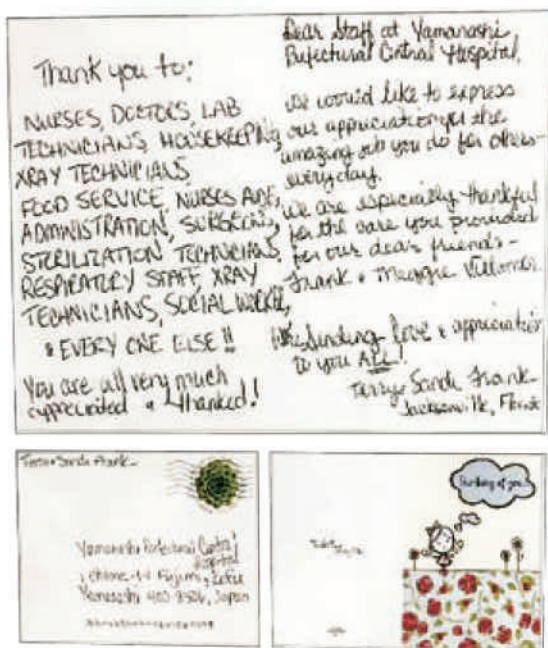 Thank you to:
NURSES, DOCTORS, LAB
TECHNICIANS, HOUSEKEEPING,
XRAY TECHNICIANS,
FOOD SERVICE, NURSES AIDE,
ADMINISTRATION, SURGEONS,
STERILIZATION TECHNICIANS,
RESPIRATORY STAFF, XRAY
TECHNICIANS, SOCIAL WORKER,
& EVERY ONE ELSE!!
You are all very much
appreciated & thanked!
Dear Staff at Yamanashi
Prefectural Central Hospital,
We would like to express
our appreciation for the
amazing job you do for others
everyday.
We are especially thankful
for the care you provided
for our dear friends -
Frank & Maggie
We're sending love & appreciation
to you ALL!
Terry & Sandi Frank
Jacksonville, Florida
Terry & Sandi Frank
Yamanashi Prefectural Central
Hospital
Fujimi, Kofu
Yamanashi 400-8506, Japan
Thinking of you!